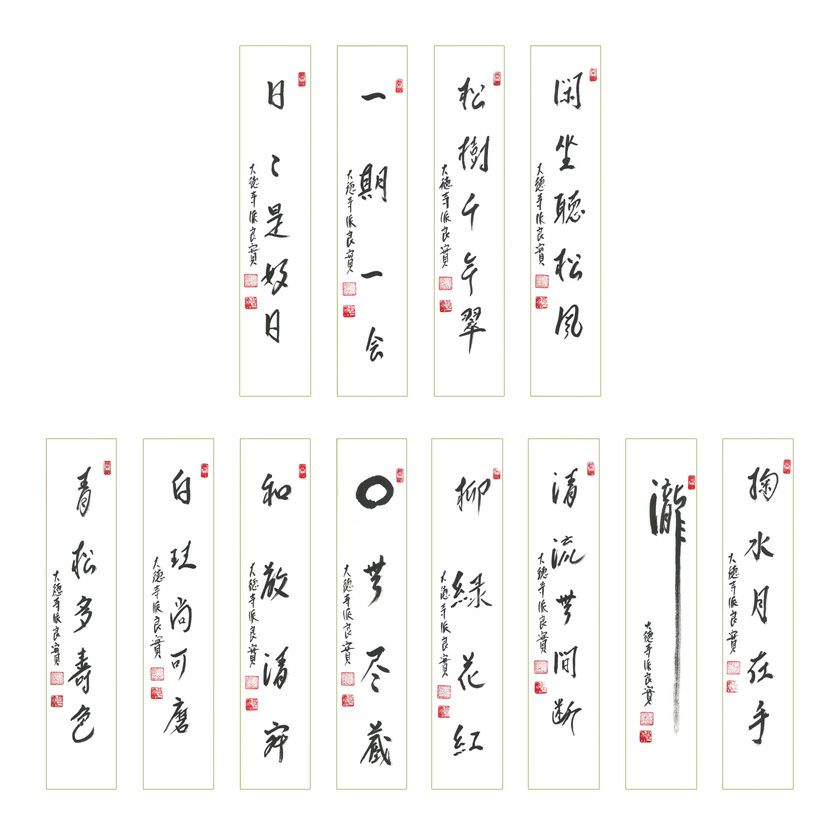 閑坐聴松風
大徳寺派良實
松樹千年翠
大徳寺派良實
一期一会
大徳寺派良實
日々是好日
大徳寺派良實
掬水月在手
大徳寺派良實
瀧
大徳寺派良實
清流無間断
大徳寺派良實
柳緑花紅
大徳寺派良實
〇無尽蔵
大徳寺派良實
和敬清寂
大徳寺派良實
白珪尚可磨
大徳寺派良實
青松多寿色
大徳寺派良實